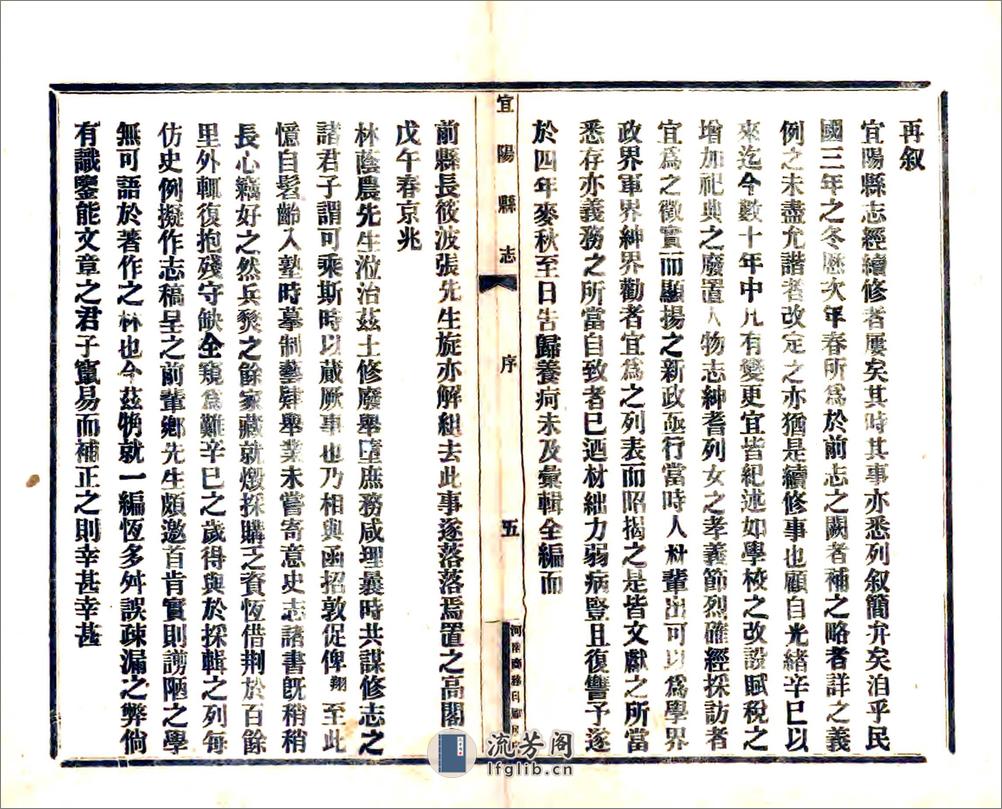 再叙
宜陽縣志經續修者屢矣其時其事亦悉列叙簡弁矣洎乎民
國三年之冬歷次年春所爲於前志之闕者補之略者詳之義
例之未盡允諧者改定之亦猶是續修事也顧自光緒辛巳以
來迄今數十年中凡有變更宜皆紀述如學校之改設賦稅之
增加祀典之廢置人物志紳耆列女之孝義節烈確經採訪者
宜爲之徵實而顯揚之新政亟行當時人材輩出可以爲學界
政界軍界紳界勸者宜爲之列表而昭揭之是皆文獻之所當
悉存亦義務之所當自致者已迺材絀力弱病豎且復讐予遂
於四年麥秋至日告歸養疴未及彙輯全編而
宜陽縣志
序
五
前縣長筱波張先生旋亦解組去此事遂落落焉置之高閣
戊午春京兆
林蔭農先生涖治茲土修廢舉墮庶務咸理曩時共謀修志之
諸君子謂可乘斯時以蕆厥事也乃相與函招敦促俾翔至此
憶自髫齡入塾時摹制藝肄舉業未嘗寄意史志諸書旣稍稍
長心竊好之然兵燹之餘家藏就燬採購乏資恆借荆於百餘
里外輒復抱殘守缺全窺爲難辛巳之歲得與於採輯之列每
仿史例擬作志稿呈之前輩鄉先生頗邀首肯實則謭陋之學
無可語於著作之林也今茲甫就一編恆多舛誤疎漏之弊倘
有識鑒能文章之君子竄易而補正之則幸甚幸甚
流芳阁
lfglib.cn